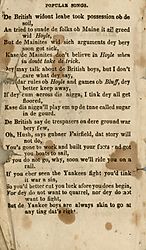 POPULAR SONGS.
De British widout leabe took possession ob de
soil,
An tried to suade de folks ob Maine it all greed
wid Hoyle,
But de Mainites wid sich arguments dey bery
soon got sick,
Kase de Mainites don't believe in Hoyle when
in doubt take de trick.
Dey may talk about de British boys, but I don't
care what dey say,
rules ob Hoyle and games ob Bluff, dey
better keep away.
If dey eber cross dis nigga, I tink dey all get
floored,
Kase dis nigga'll play em up de tune called sugar
in de gourd.
De British say de trespasers on dere ground war
bery few,
Oh, Hush, says gubner Fairfield, dat story will
not do,
You's gone to work and built your forts and got
you boats to sail,
If you do not go way, soon, we'll ride you on a
rail.
If you eber seen the Yankees fight you'd tink
it war a sin,
So you'd better cut you lucky afore you does begin,
For dey do not want to quarrel, nor dey do not
want to fight,
But de Yankee boys are always skin to go as
say ting dat's right.